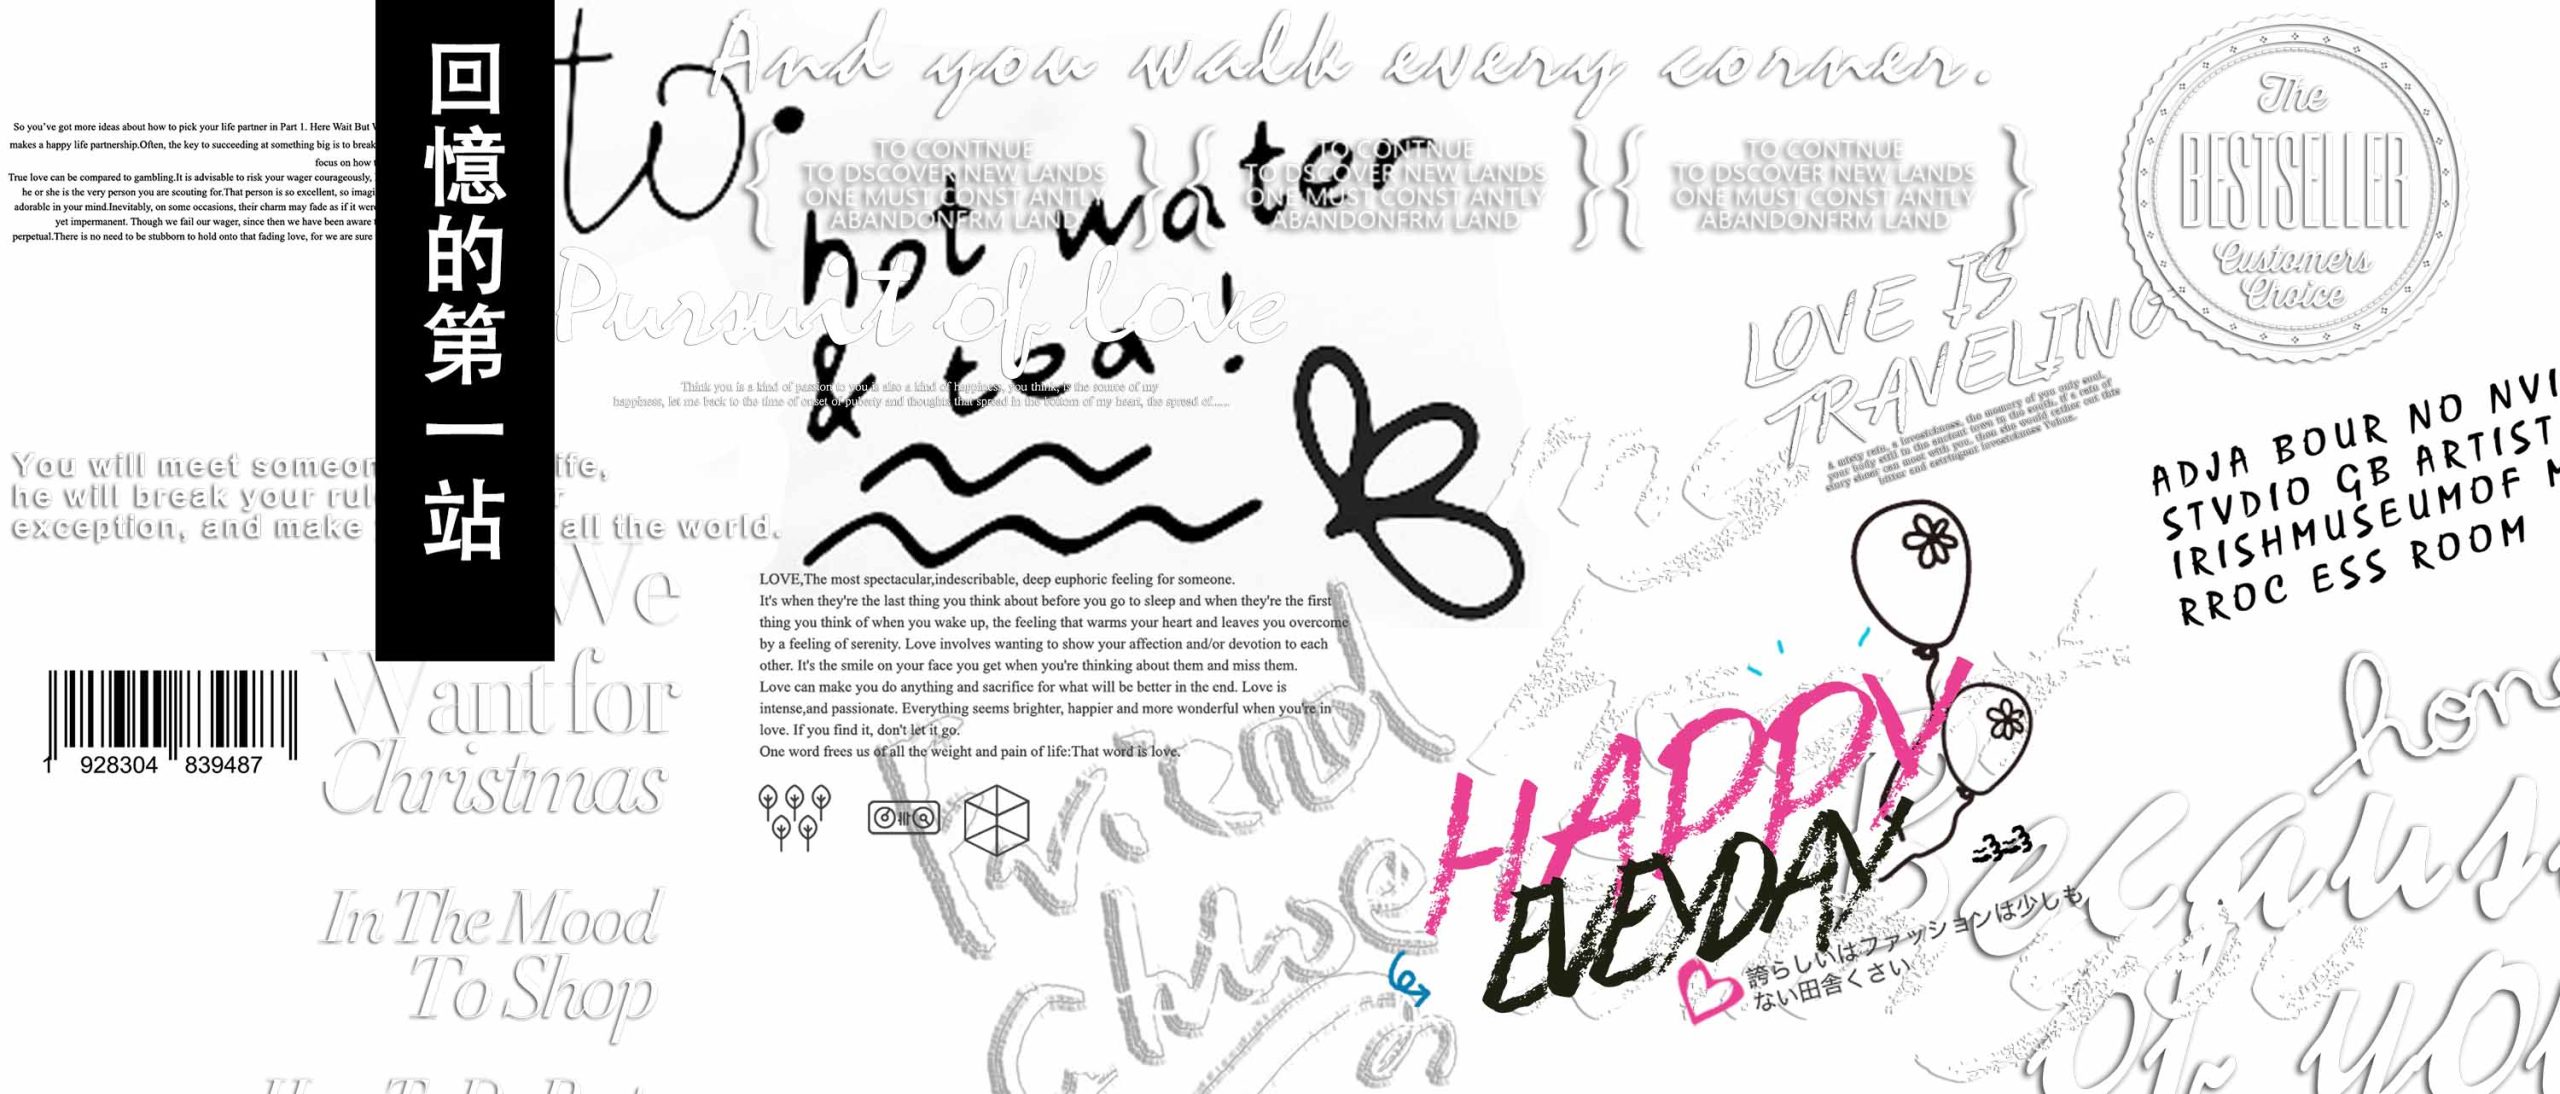 回憶的第一站
So you've got more ideas about how to pick your life partner in Part 1. Here Wait But
makes a happy life partnership.Often, the key to succeeding at something big is to break
focus on how
True love can be compared to gambling.It is advisable to risk your wager courageously,
he or she is the very person you are scouting for.That person is so excellent, so
adorable in your mind.Inevitably, on some occasions, their charm may fade as if it
yet impermanent. Though we fail our wager, since then we have been aware
perpetual.There is no need to be stubborn to hold onto that fading love, for we are sure
You will meet
he will break your
exception, and make all the world.
1 928304 839487
We
Want for
Christmas
In The Mood
To Shop
to.
hot water
& tea!
And you walk every corner.
TO CONTNUE
TO DSCOVER NEW LANDS
ONE MUST CONST ANTLY
ABANDONFRM LAND
TO CONTNUE
TO DSCOVER NEW LANDS
ONE MUST CONST ANTLY
ABANDONFRM LAND
TO CONTNUE
TO DSCOVER NEW LANDS
ONE MUST CONST ANTLY
ABANDONFRM LAND
Pursuit of love
Think you is a kind of passion to you is also a kind of happiness, you think, is the source of my
happiness, let me back to the time of onset of puberty and thoughts that spread in the bottom of my heart, the spread of......
LOVE,The most spectacular,indescribable, deep euphoric feeling for someone.
It's when they're the last thing you think about before you go to sleep and when they're the first
thing you think of when you wake up, the feeling that warms your heart and leaves you overcome
by a feeling of serenity. Love involves wanting to show your affection and/or devotion to each
other. It's the smile on your face you get when you're thinking about them and miss them.
Love can make you do anything and sacrifice for what will be better in the end. Love is
intense,and passionate. Everything seems brighter, happier and more wonderful when you're in
love. If you find it, don't let it go.
One word frees us of all the weight and pain of life:That word is love.
The
BESTSELLER
Customers
Choice
LOVE IS
TRAVELING
A misty rain, a lovesickness, the memory of you only soul,
your body still in the ancient town in the south, if a rain of
story shear can meet with you, then she would rather cut this
bitter and astringent lovesickness Yuhua.
ADJA BOUR NO
STVDIO GB ARTIST
IRISHMUSEUMOF
RROC ESS ROOM
Friend
HAPPY
EVEYDAY
誇らしいはファッションは少しも
ない田舎くさい
of